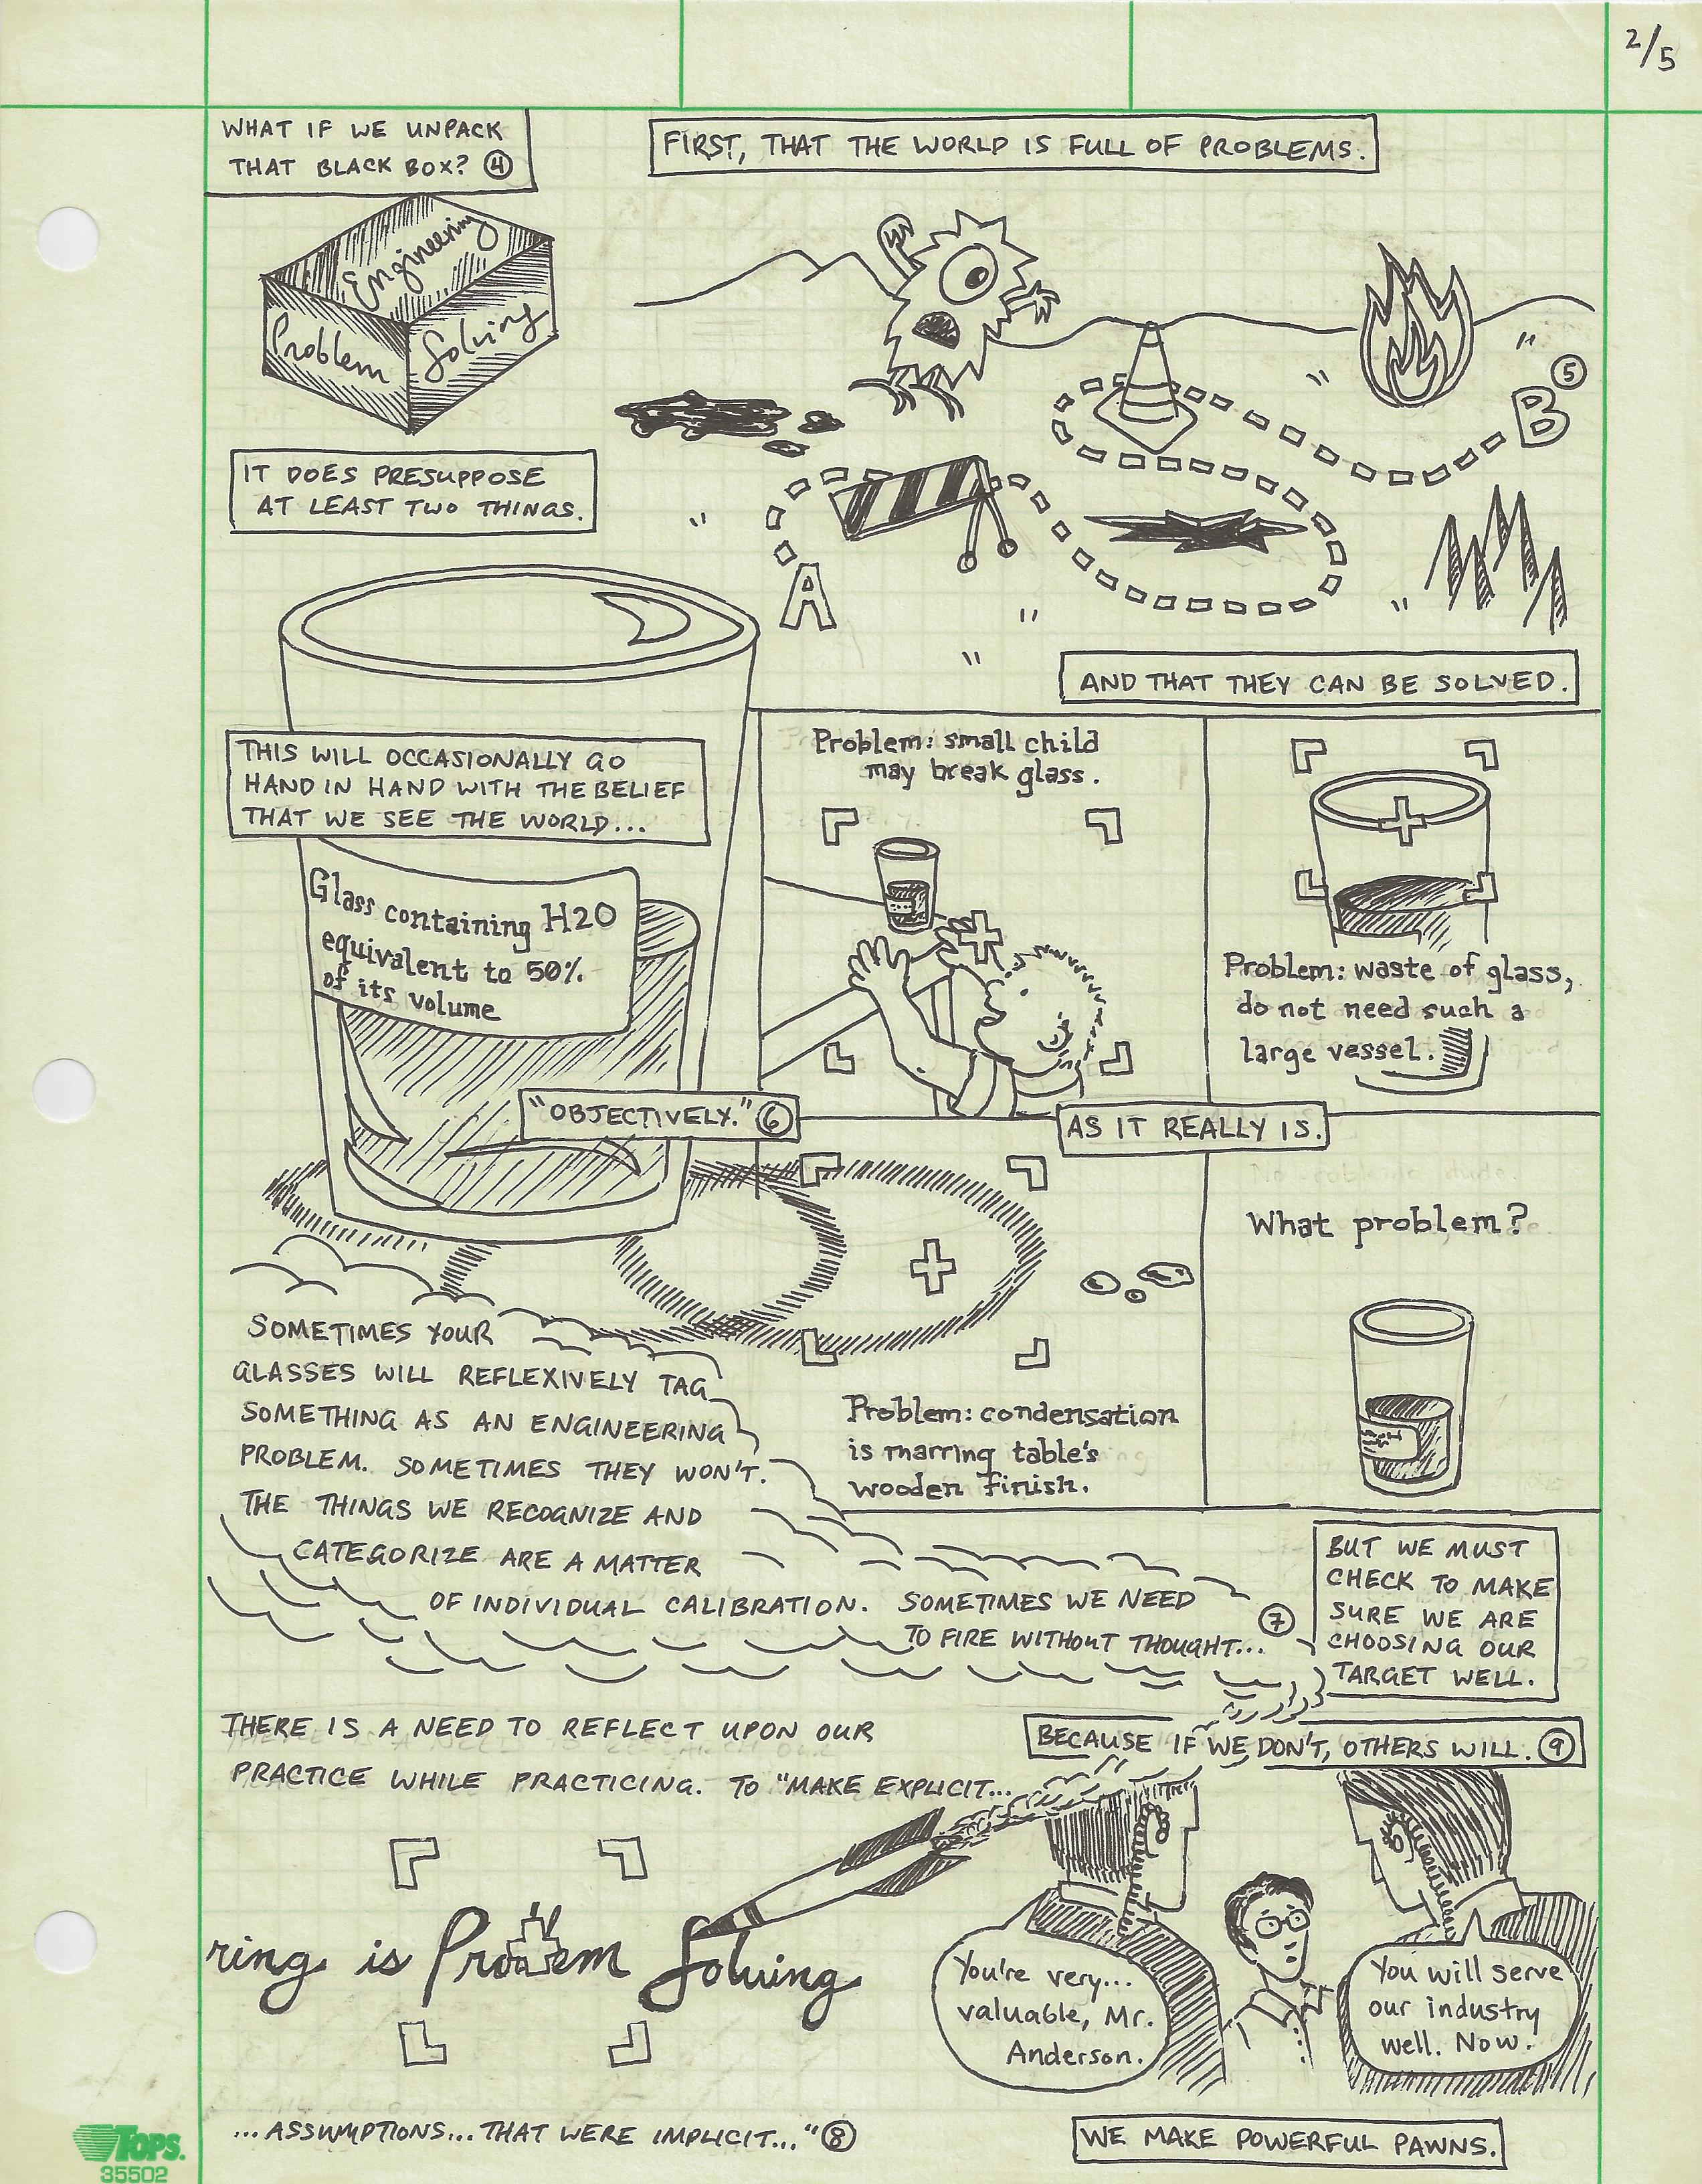 2/5
WHAT IF WE UNPACK
THAT BLACK BOX? ④
Engineering
Problem
Solving
IT DOES PRESUPPOSE
AT LEAST TWO THINGS.
FIRST, THAT THE WORLD IS FULL OF PROBLEMS.
A
B
⑤
AND THAT THEY CAN BE SOLVED.
THIS WILL OCCASIONALLY GO
HAND IN HAND WITH THE BELIEF
THAT WE SEE THE WORLD...
Glass containing H2O
equivalent to 50%
of its volume
"OBJECTIVELY." ⑥
AS IT REALLY IS.
Problem: small child
may break glass.
Problem: waste of glass,
do not need such a
large vessel.
Problem: condensation
is marring table's
wooden finish.
What problem?
SOMETIMES YOUR
GLASSES WILL REFLEXIVELY TAG
SOMETHING AS AN ENGINEERING
PROBLEM. SOMETIMES THEY WON'T.
THE THINGS WE RECOGNIZE AND
CATEGORIZE ARE A MATTER
OF INDIVIDUAL CALIBRATION. SOMETIMES WE NEED
TO FIRE WITHOUT THOUGHT... ⑦
BUT WE MUST
CHECK TO MAKE
SURE WE ARE
CHOOSING OUR
TARGET WELL.
THERE IS A NEED TO REFLECT UPON OUR
PRACTICE WHILE PRACTICING. TO "MAKE EXPLICIT...
ring is Problem Solving
...ASSUMPTIONS...THAT WERE IMPLICIT..." ⑧
BECAUSE IF WE DON'T, OTHERS WILL. ⑨
You're very...
valuable, Mr.
Anderson.
You will serve
our industry
well. Now.
WE MAKE POWERFUL PAWNS.
TOPS.
35502